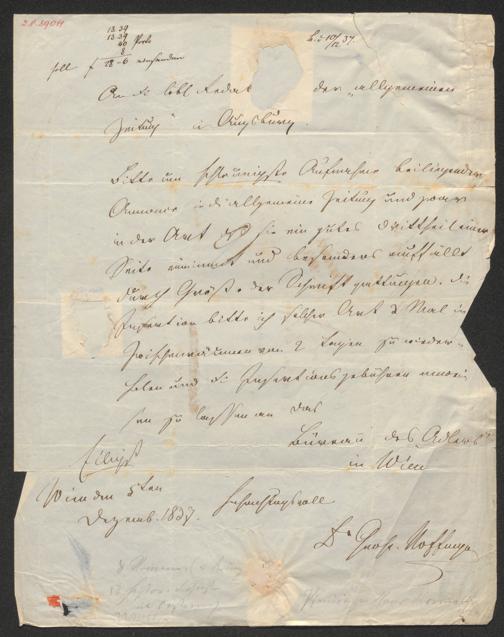 13 39
13 39
40 Porto
8
soll f 28-6
10/12 37.
An die löbl Redak der „allgemeinen
Zeitung" in Augsburg.
Bitte um schleunigste Aufnahme beiliegender
Annonce in die allgemeine Zeitung und zwar
in der Art daß sie ein gutes Drittheil einer
Seite einnimmt und besonders auffällt
durch Größe der Schriftgattungen. Die
Insertion bitte ich selber Art 3 Mal in
Zwischenräumen von 2 Tagen zu wieder-
holen und die Insertionsgebühren
zu lassen an das
Büreau des Adlers
in Wien
Eiligst
Wien den 5ten
Dezemb. 1837.
Hochachtungsvoll
Dr Groß-Hoffinger